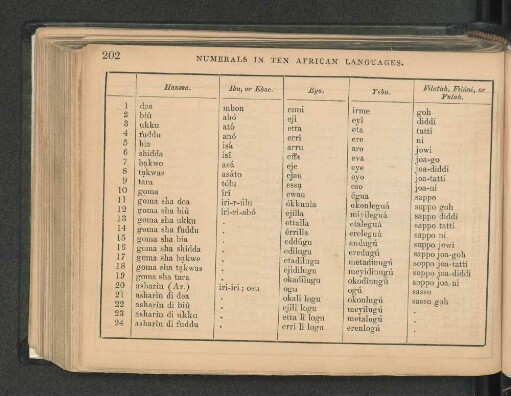 202
NUMERALS IN TEN AFRICAN LANGUAGES.
Haussa. Ibu, or Eboe. Eyo. Yebu. Filatah, Filáni, or Fulah.
1 dea mbon enni irme goh
2 biú abó eji eyi diddi
3 ukku ató etta eta tatti
4 fuddu anó erri ere ni
5 bia isá arru aro jowi
6 shidda isí effa eva joa-go
7 bąkwe asá eje eye joa-diddi
8 tąkwas asáto ejau eyo joa-tatti
9 tara tólu essą eso joa-ni
10 goma irí ewau égua sappo
11 goma sha dea iri-r-úlu ókkunla okonleguá sappo goh
12 goma sha biú iri-ri-abó ejilla miyileguá sappo diddi
13 goma sha ukku . ettalla etaleguá sappo tatti
14 goma sha fuddu . érrilla ereleguá sappo ni
15 goma sha bia . eddógu andugú sappo jowi
16 goma sha shidda . edilugu eredugú sappo joa-goh
17 goma sha bąkwe . etadilugu metadinugú soppo joa-tatti
18 goma sha tąkwas . ejidilugu meyidinugú soppo joa-diddi
19 goma sha tara . okadilugu okodinugú soppo joa-ni
20 asharín (Ar.) iri-iri; osu ogu ogú sasso
21 asharin di dea . okali logu okonlugú sasso goh
22 asharin di biú . ejili logu meyilugú .
23 asharin di ukku . etta li logu metalogú .
24 asharin di fuddu . erri li logu erenlogú .